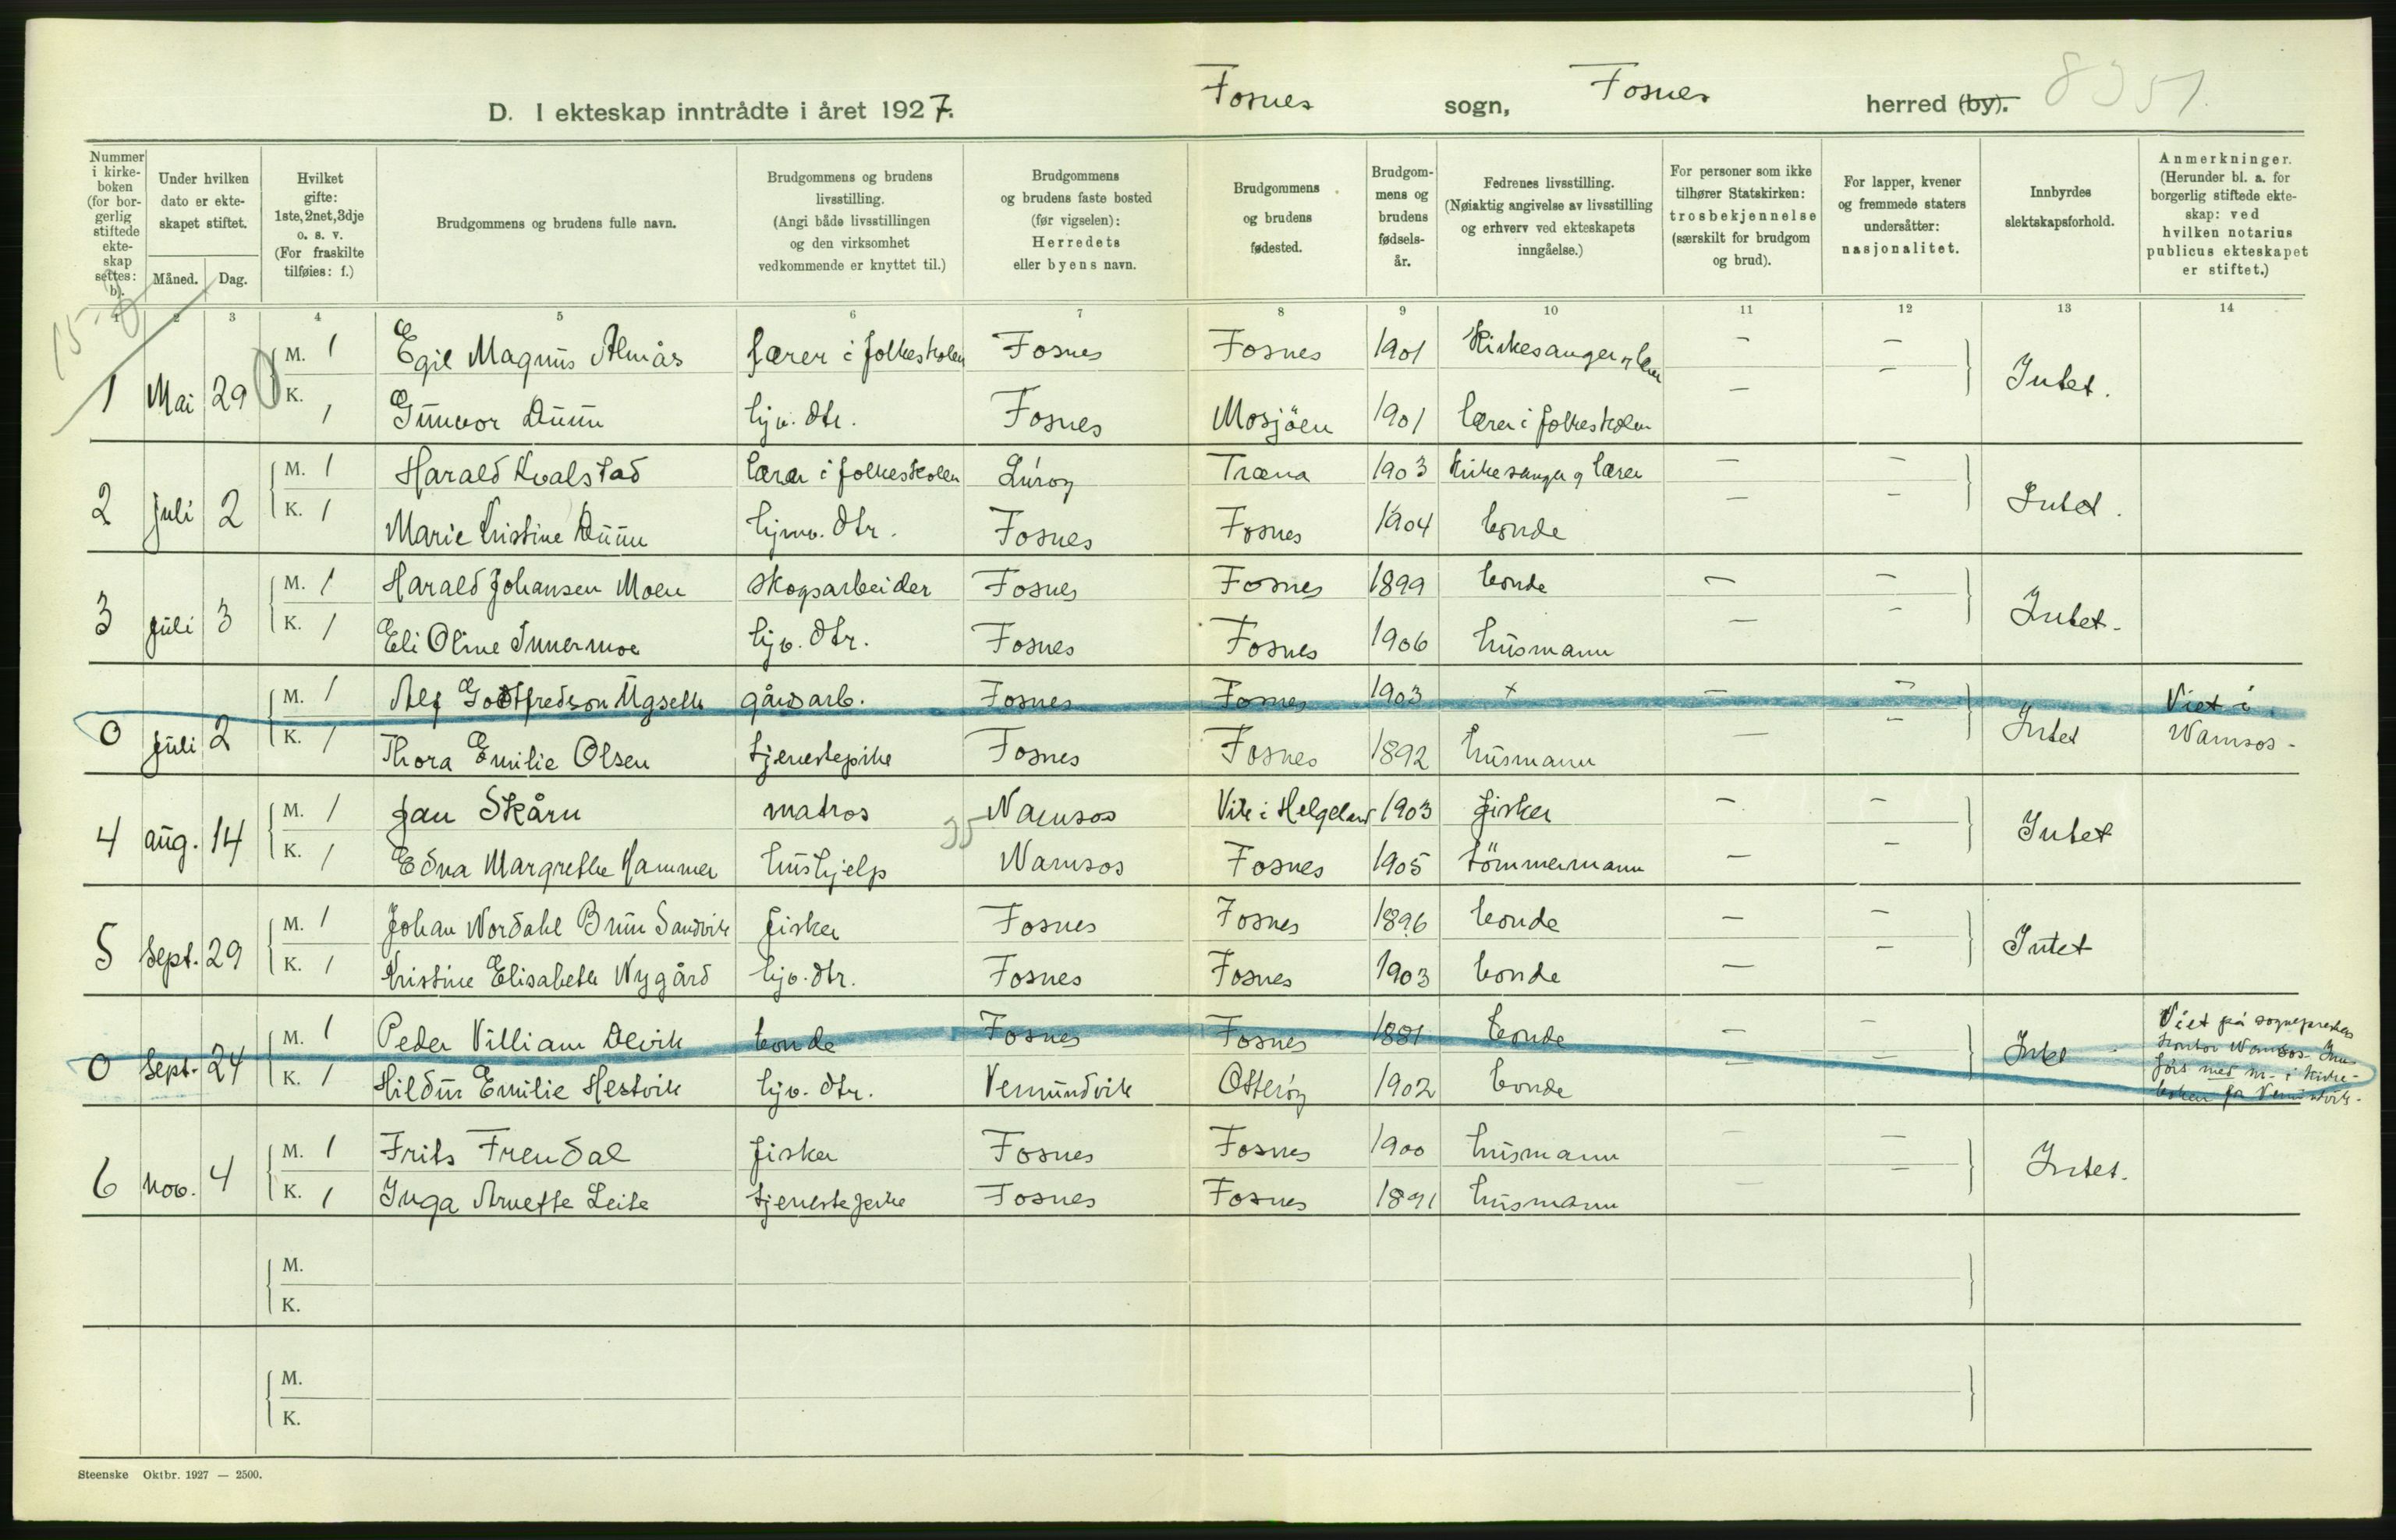 D. I ekteskap inntrådte i året 1927. Fosnes sogn, Fosnes herred (by). 8351.
Nummer i kirkeboken (for borgerlig stiftede ekteskap settes: b).
Under hvilken dato er ekteskapet stiftet.
Måned. Dag.
Hvilket gifte: 1ste, 2net, 3dje o. s. v. (For fraskilte tilføies: f.)
Brudgommens og brudens fulle navn.
Brudgommens og brudens livsstilling. (Angi både livsstillingen og den virksomhet vedkommende er knyttet til.)
Brudgommens og brudens faste bosted (før vigselen): Herredets eller byens navn.
Brudgommens og brudens fødested.
Brudgommens og brudens fødselsår.
Fedrenes livsstilling. (Nøiaktig angivelse av livsstilling og erhverv ved ekteskapets inngåelse.)
For personer som ikke tilhører Statskirken: trosbekjennelse (særskilt for brudgom og brud).
For lapper, kvener og fremmede staters undersåtter: nasjonalitet.
Innbyrdes slektskapsforhold.
Anmerkninger. (Herunder bl. a. for borgerlig stiftede ekteskap: ved hvilken notarius publicus ekteskapet er stiftet.)
1 2 3 4 5 6 7 8 9 10 11 12 13 14
1 Mai 29 M. 1 Egil Magnus Almås lærer i folkeskolen Fosnes Fosnes 1901 Kirkesanger og lærer – – Intet.
K. 1 Gunvor Duun hjv. dtr. Fosnes Mosjöen 1901 lærer i folkeskolen – –
2 Juli 2 M. 1 Harald Kvalstad lærer i folkeskolen Luröy Træna 1903 Kirkesanger og lærer – – Intet.
K. 1 Marie Kristine Duun hjmv. dtr. Fosnes Fosnes 1904 bonde – –
3 Juli 3 M. 1 Harald Johansen Moen skogsarbeider Fosnes Fosnes 1899 bonde – – Intet.
K. 1 Eli Oline Innermoe hjv. dtr. Fosnes Fosnes 1906 husmann – –
0 Juli 2 M. 1 Alf Godtfredson gårdsarb. Fosnes Fosnes 1903 + – – Intet Viet i
K. 1 Thora Emilie Olsen tjenestepike Fosnes Fosnes 1892 husmann – – Namsos.
4 aug. 14 M. 1 Jan Skårn matros Namsos Vik i Helgeland 1903 fisker – – Intet
K. 1 Edna Margrethe Hammer hushjelp 35 Namsos Fosnes 1905 tömmermann – –
5 Sept. 29 M. 1 Johan Nordahl Brun Sandvik fisker Fosnes Fosnes 1896 bonde – – Intet
K. 1 Kristine Elisabeth Nygård hjv. dtr. Fosnes Fosnes 1903 bonde – –
0 Sept. 24 M. 1 Peder Villiam Devik bonde Fosnes Fosnes 1881 bonde – – Intet Viet på sogneprestens
kontor Namsos. Inn-
K. 1 Hildur Emilie Hestvik hjv. dtr. Vemundvik Otteröy 1902 bonde – – förs med nr. i kirke-
boken for Vemundvik.
6 nov. 4 M. 1 Frits Frendal fisker Fosnes Fosnes 1900 husmann – – Intet.
K. 1 Inga Anette Leite tjenestepike Fosnes Fosnes 1891 husmann – –
M.
K.
M.
K.
Steenske Oktbr. 1927 — 2500.